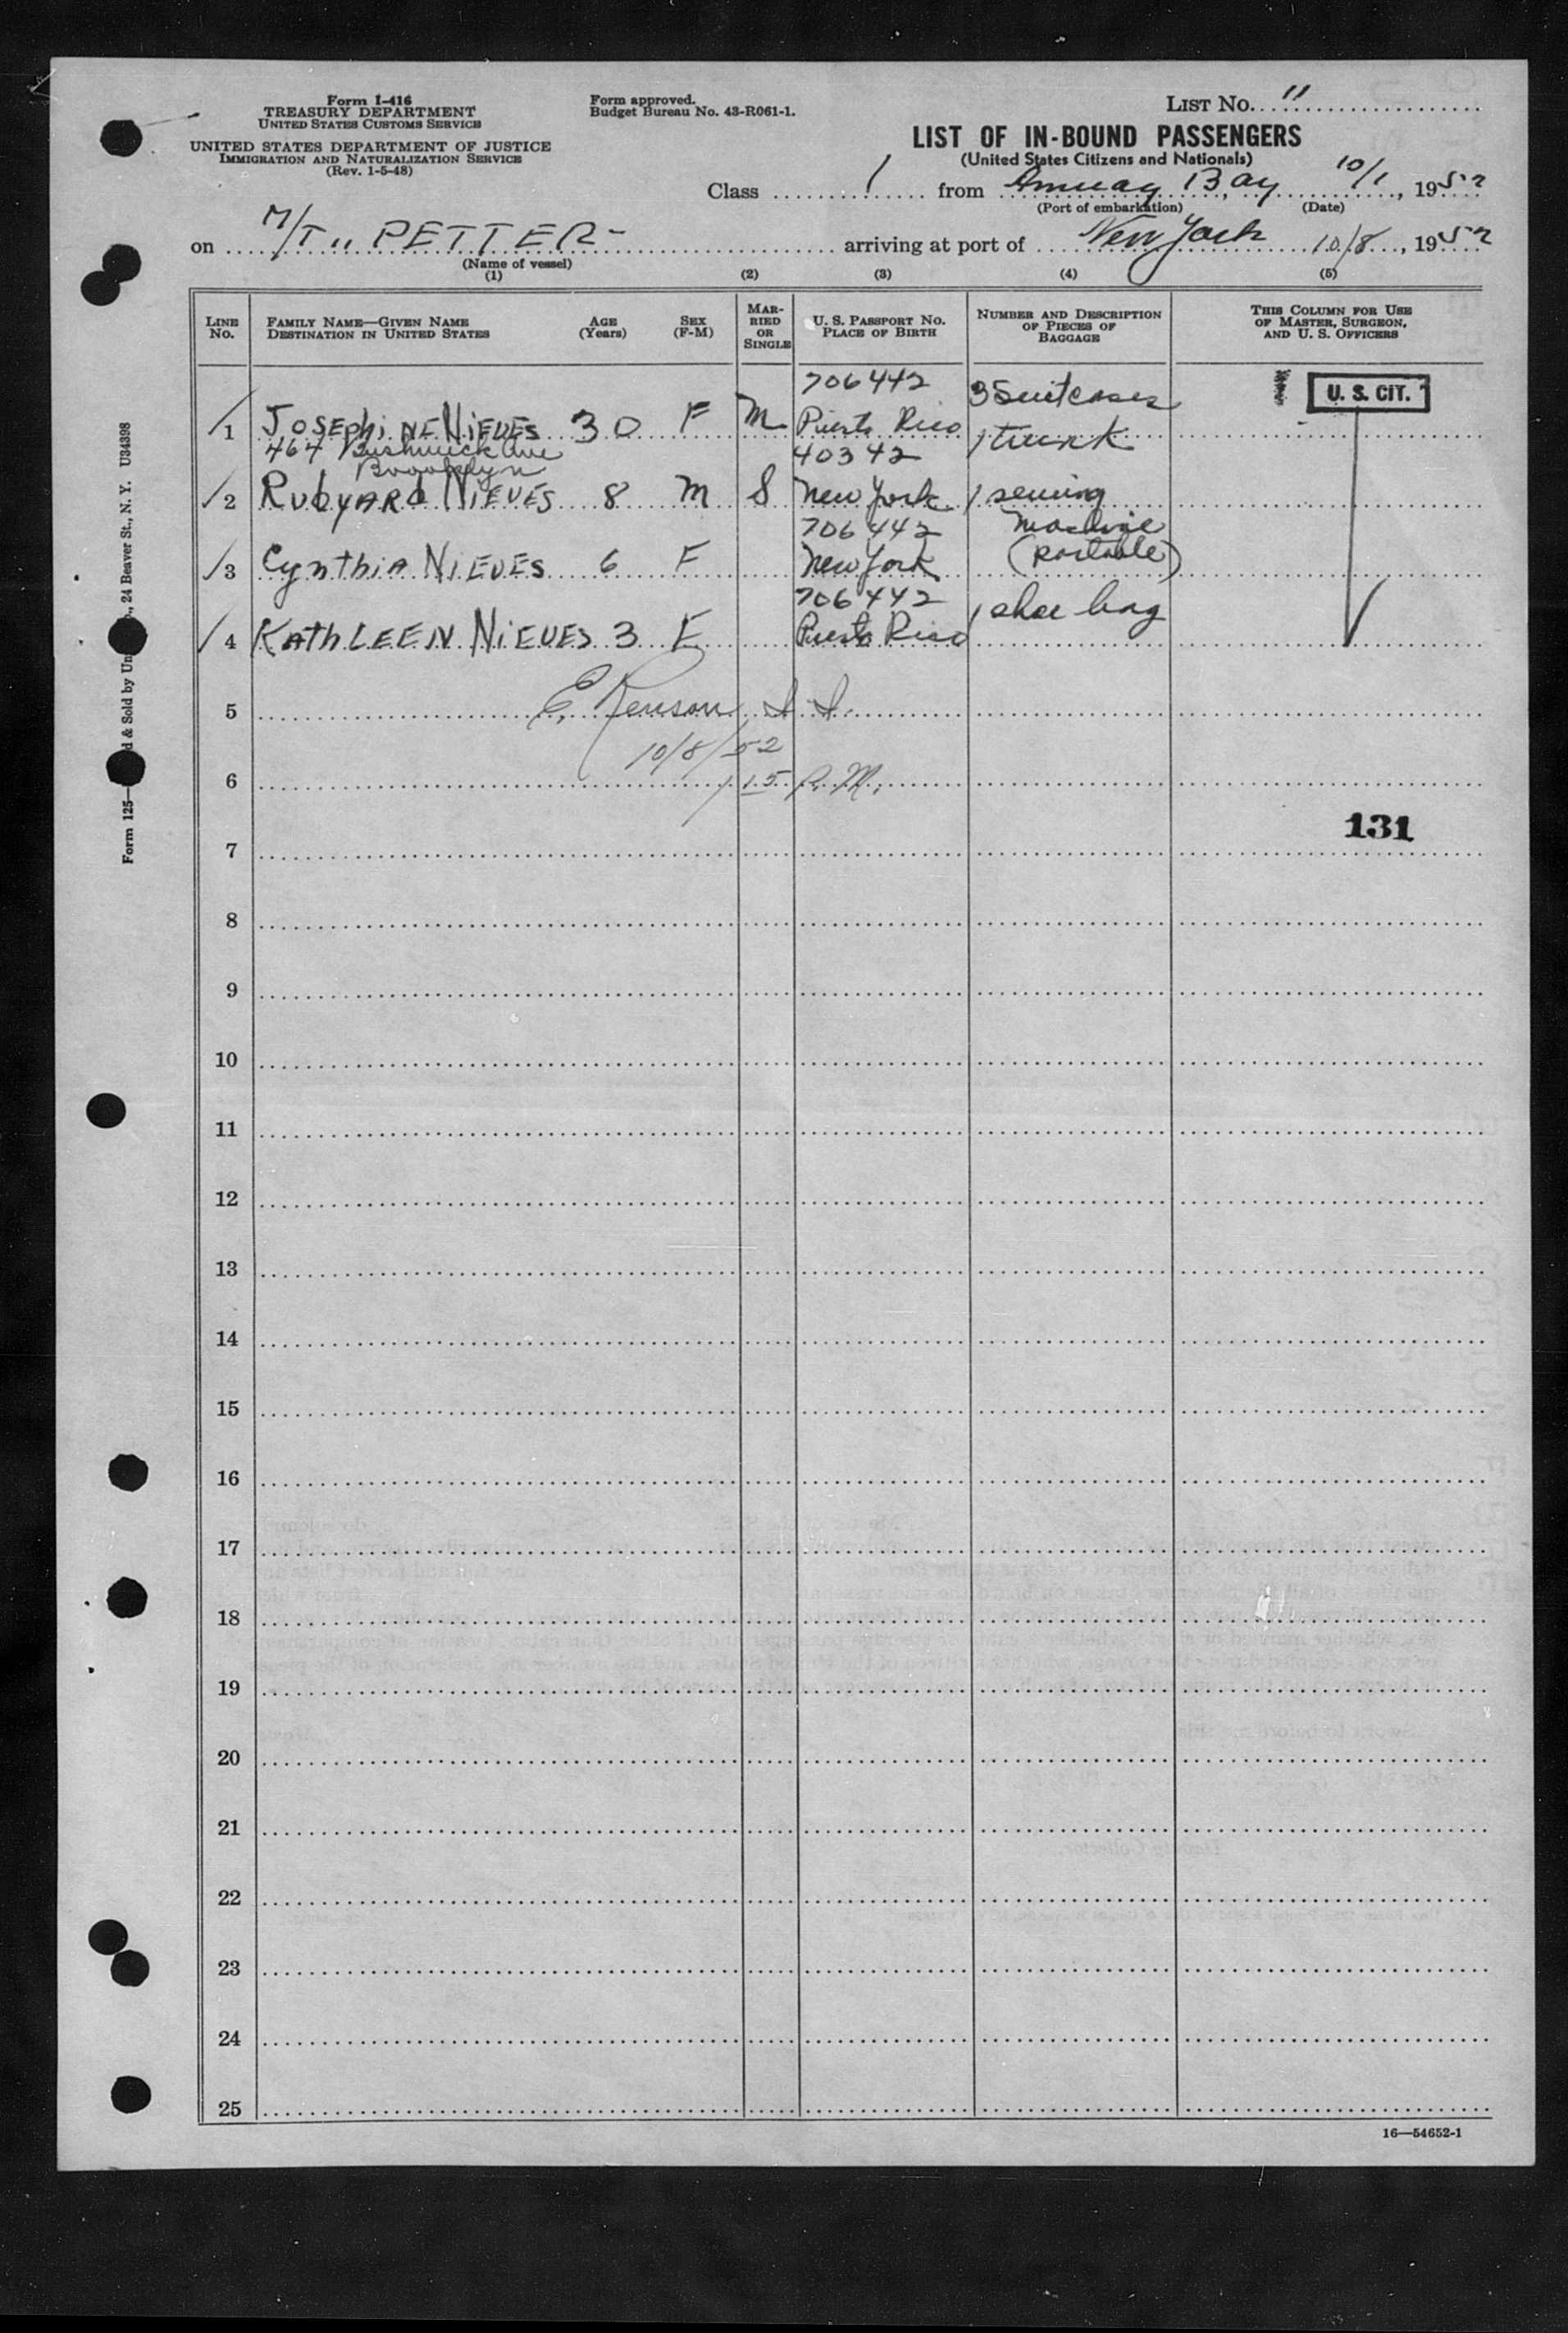 Form I-416
TREASURY DEPARTMENT
UNITED STATES CUSTOMS SERVICE
UNITED STATES DEPARTMENT OF JUSTICE
IMMIGRATION AND NATURALIZATION SERVICE
(Rev. 1-5-48)
Form approved.
Budget Bureau No. 43-R061-1.
LIST No. 11
LIST OF IN-BOUND PASSENGERS
(United States Citizens and Nationals)
Class 1 from Amuay Bay, 10/1, 1952
(Port of embarkation) (Date)
on M/T "PETTER" arriving at port of New York 10/8, 1952
(Name of vessel)
(1) (2) (3) (4) (5)
LINE No. FAMILY NAME—GIVEN NAME DESTINATION IN UNITED STATES AGE (Years) SEX (F-M) MARRIED OR SINGLE U. S. PASSPORT No. PLACE OF BIRTH NUMBER AND DESCRIPTION OF PIECES OF BAGGAGE THIS COLUMN FOR USE OF MASTER, SURGEON, AND U. S. OFFICERS
706442 3 Suitcases U. S. CIT.
1 JOSEPHINE NIEVES 30 F M Puerto Rico 1 trunk
464 Bushwick Ave 40342
Brooklyn
2 RUDYARD NIEVES 8 M S New York 1 sewing
706442 machine
3 Cynthia NIEVES 6 F New York (portable)
706442 1 shoe bag
4 KATHLEEN NIEVES 3 F Puerto Rico
5 E. Renson
10/8/52
6 1 15 P.M.
131
7
8
9
10
11
12
13
14
15
16
17
18
19
20
21
22
23
24
25
16—54652-1
Form 125— d & Sold by Un ., 24 Beaver St., N. Y. U34398